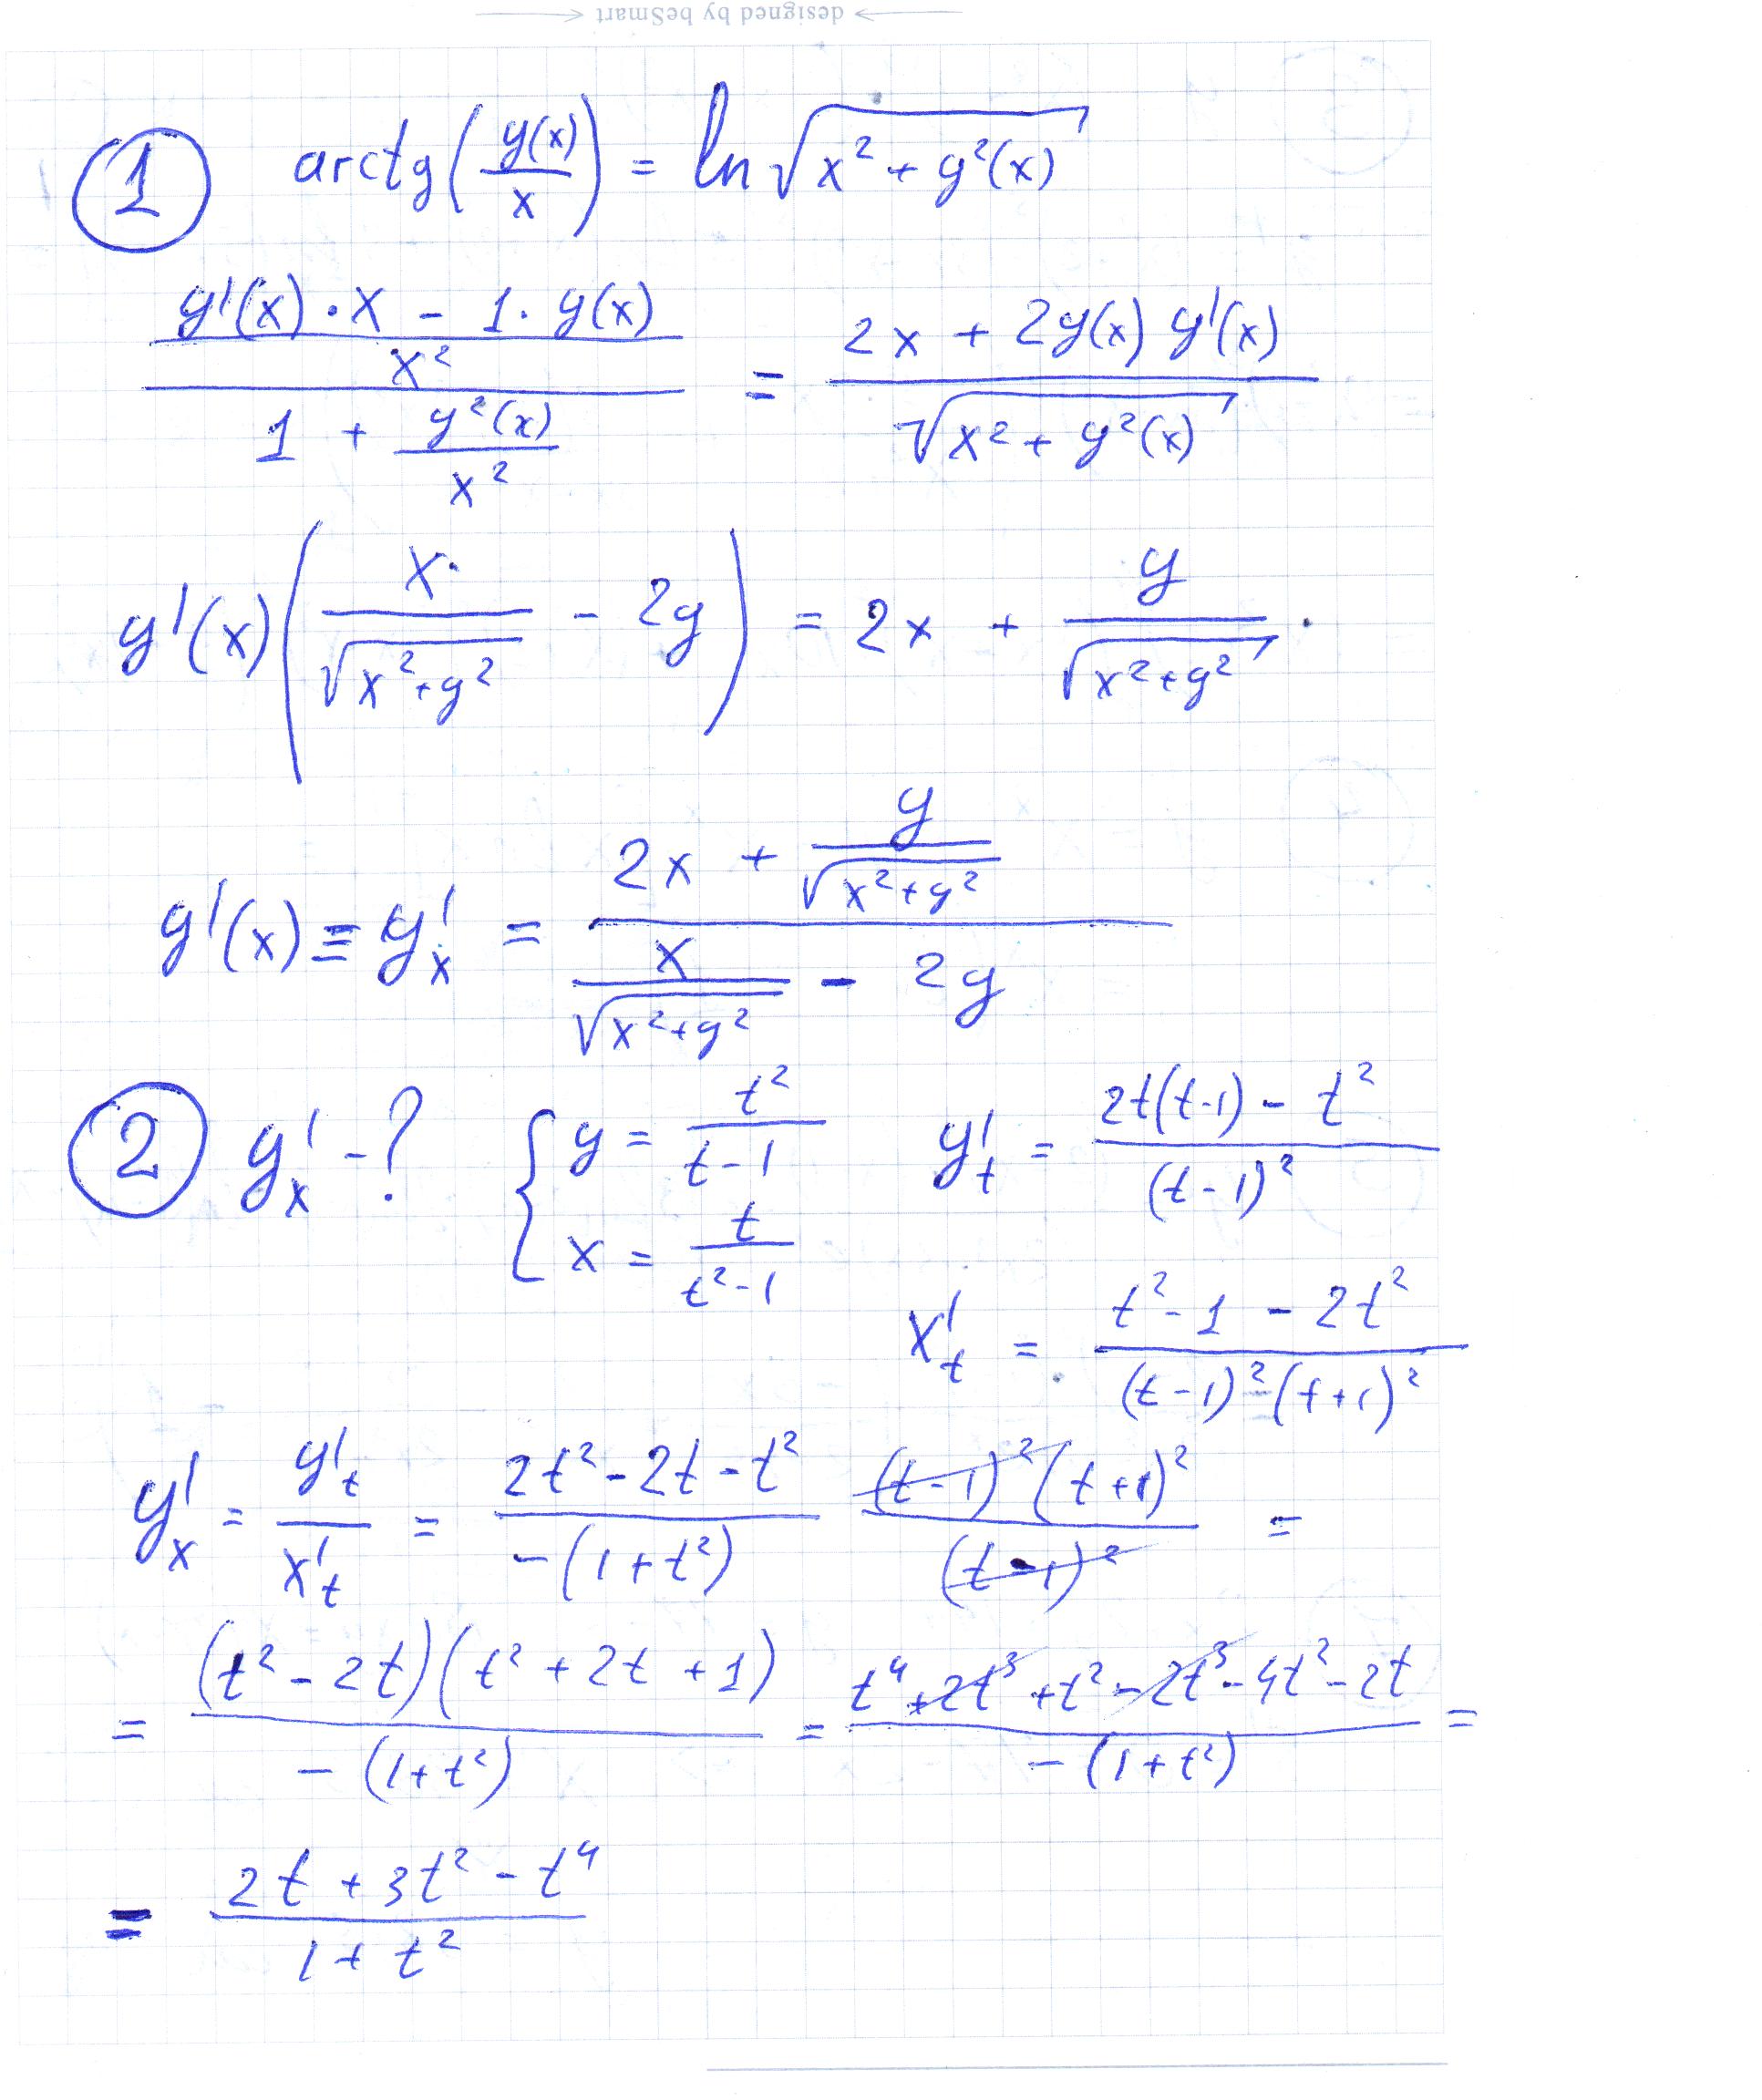 designed by beSmart
① arctg(y(x)/x) = ln√(x² + y²(x))
((y'(x)·x - 1·y(x))/x²)/(1 + y²(x)/x²) = (2x + 2y(x) y'(x))/√(x² + y²(x))
y'(x)(x/√(x²+y²) - 2y) = 2x + y/√(x²+y²).
y'(x) ≡ y'ₓ = (2x + y/√(x²+y²))/(x/√(x²+y²) - 2y)
② y'ₓ - ? { y = t²/(t-1) y'ₜ = (2t(t-1) - t²)/(t-1)²
x = t/(t²-1)
x'ₜ = (t²-1 - 2t²)/((t-1)²(t+1)²)
y'ₓ = y'ₜ/x'ₜ = (2t²-2t-t²)/(-(1+t²)) ((t-1)²(t+1)²)/(t-1)² =
= ((t²-2t)(t²+2t+1))/(-(1+t²)) = (t⁴+2t³+t²-2t³-4t²-2t)/(-(1+t²)) =
= (2t+3t²-t⁴)/(1+t²)